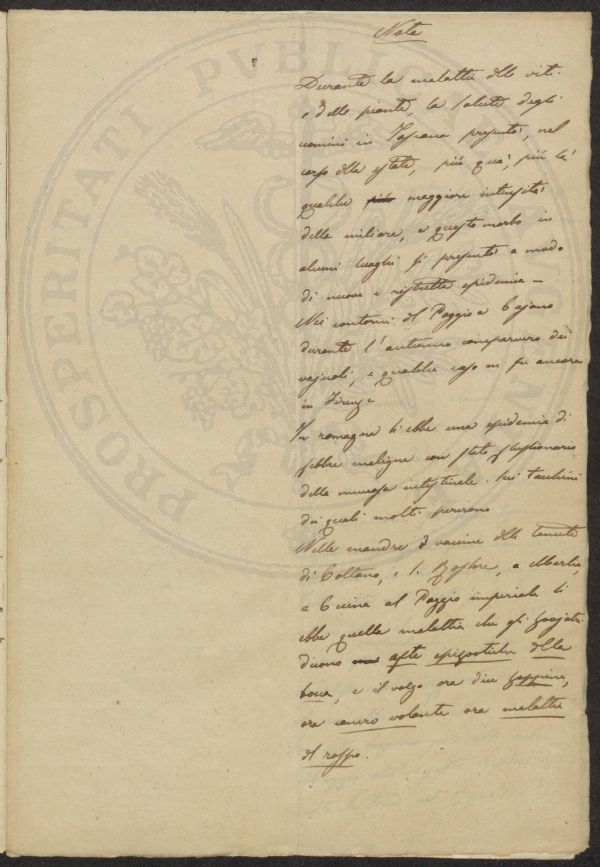 Nota
Durante la malattia delle viti
e delle piante, la salute degli
uomini in Toscana presentò, nel
corso della estate, più quà, più là
qualche più maggiore intensità
della miliare, e questo morbo in
alcuni luoghi si presentò a modo
di nuova e ristretta epidemia —
Nei contorni del Poggio a Cajano
durante l'autunno comparvero dei
vajuoli, e qualche caso ve fu ancora
in Firenze
In romagna si ebbe una epidemia di
febbre maligna con stato flussionario
della mucosa intestinale. tacchini
dei quali molti perirono
Nelle mandre di vaccine della tenuta
di Coltano, e S. Rossore, a Marlia,
a Cecina al Poggio imperiale si
ebbe quella malattia che gli
dicono afte epizootiche della
bocca, e il volgo ora dice zoppina,
ora cancro volante ora malattia
del rospo.
PROSPERITATI PVBLICAE